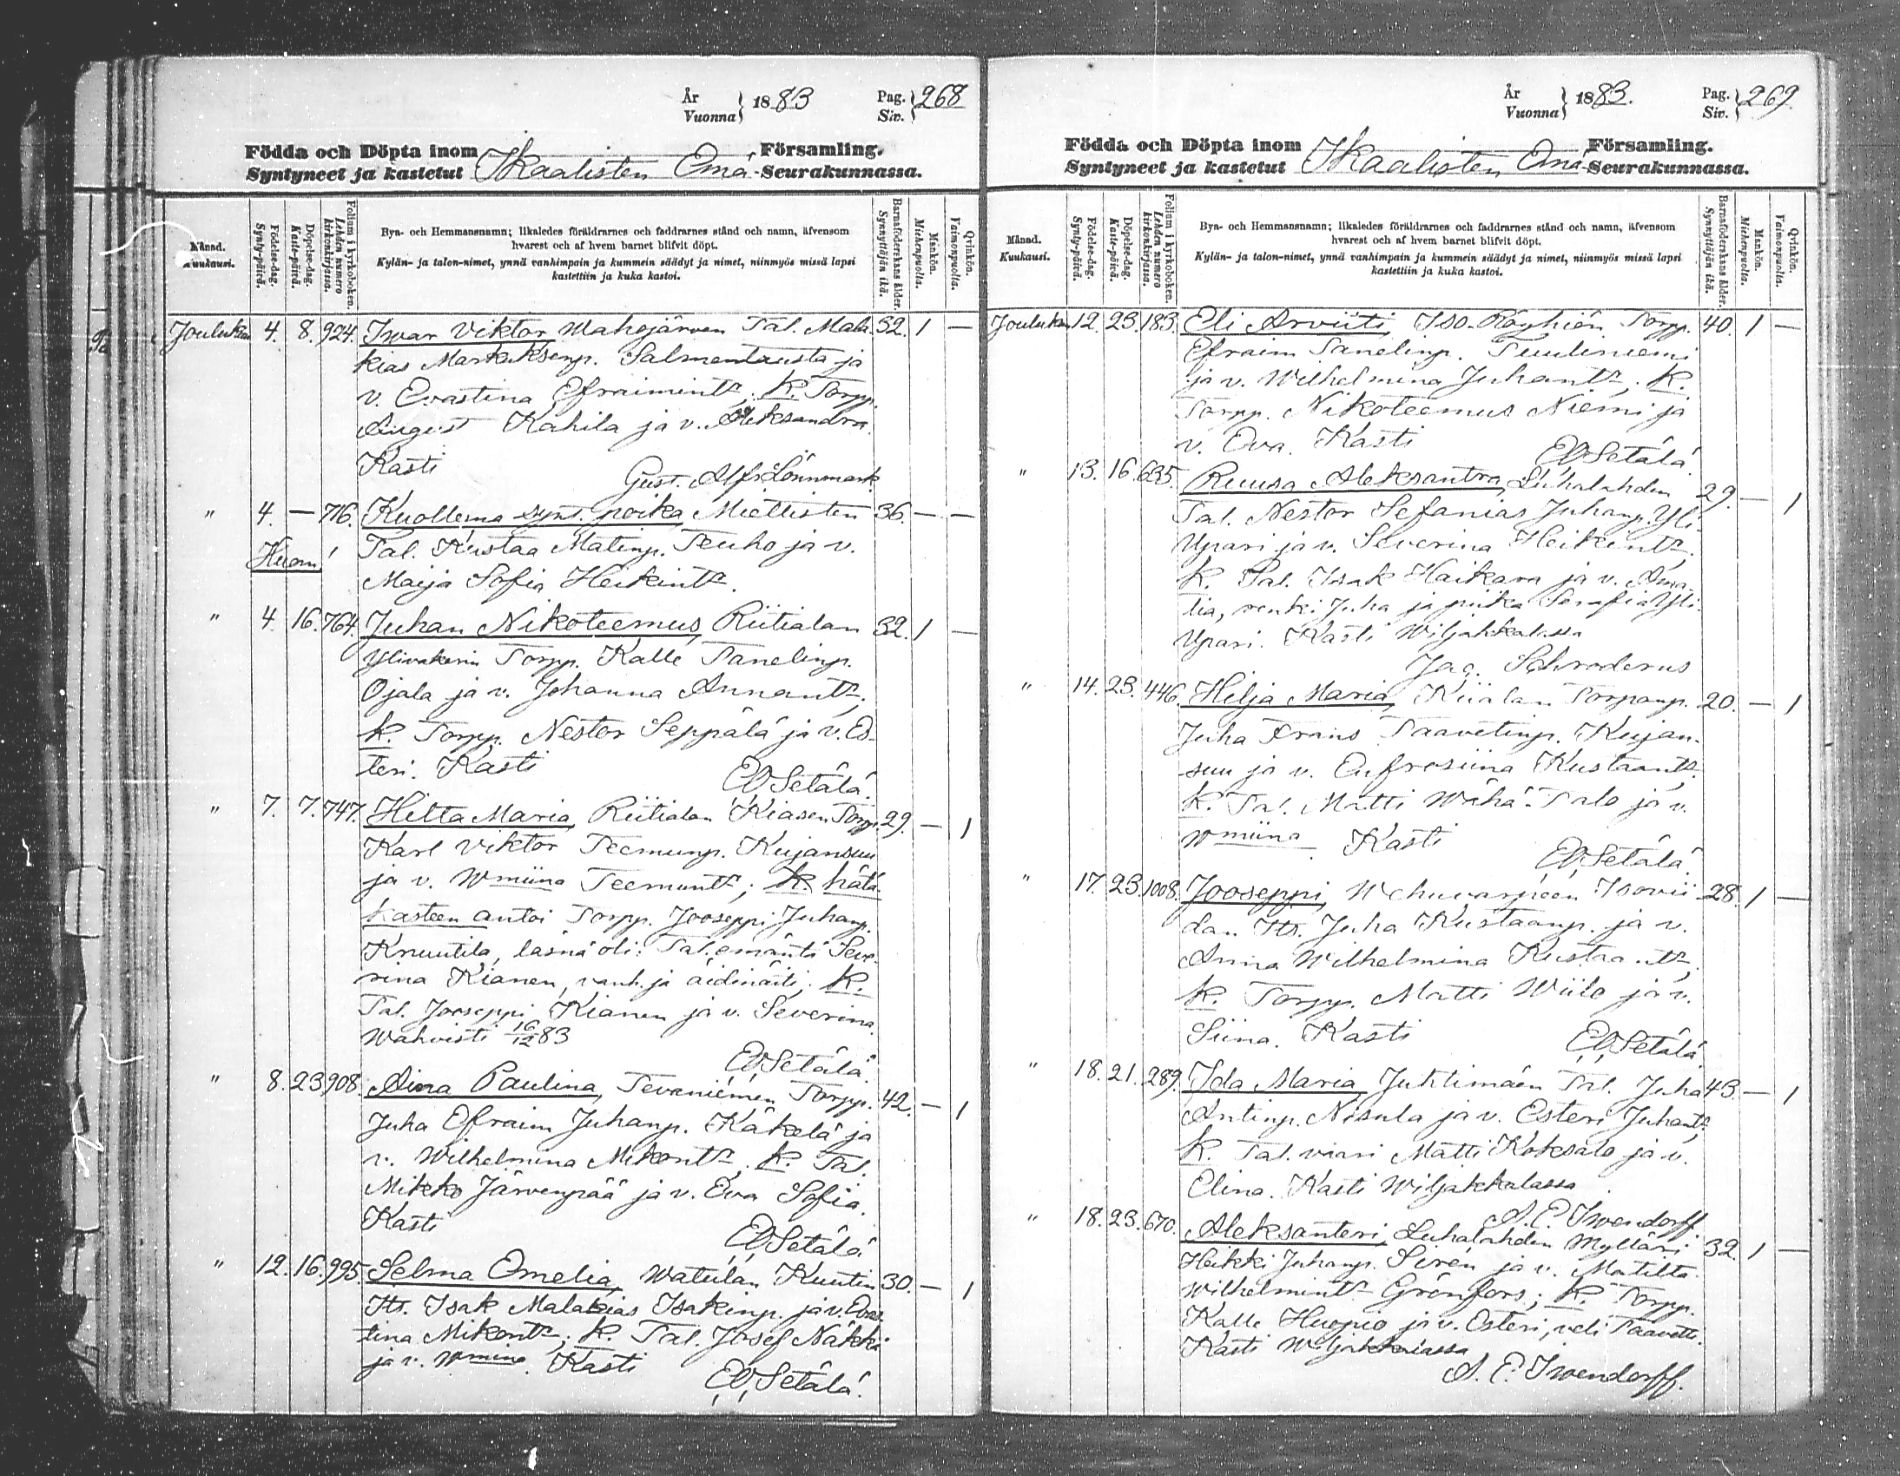 År
Vuonna } 1883
Pag.
Siv. } 268
Födda och Döpta inom
Syntyneet ja kastetut
Ikaalisten Emä-
Församling.
Seurakunnassa.
Månad.
Kuukausi.
Födelse-dag.
Synty-päivä.
Döpelse-dag.
Kaste-päivä.
Folium i kyrkoboken.
Lehden numero kirkonkirjassa.
Bya- och Hemmansnamn; likaledes föräldrarnes och faddrarnes stånd och namn, äfvensom
hvarest och af hvem barnet blifvit döpt.
Kylän- ja talon-nimet, ynnä vanhimpain ja kummein säädyt ja nimet, niinmyös missä lapsi
kastettiin ja kuka kastoi.
Barnaföderskans ålder.
Synnyttäjän ikä.
Mankön.
Miehenpuolta.
Qvinkön.
Vaimonpuolta.
Jouluk. 4. 8. 924. Iwar Viktor, Mahojärven Tal. Mala- 32. 1 —
kias Markuksenp. Salmentausta ja
v. Evastina Efraimint.; K. Torpp.
August Kahila ja v. Aleksandra.
Kasti
Gust. Alfr. Lönnmark.
" 4. — 716. Kuollema synt. poika, Miettisten 36. — —
Huom! Tal. Kustaa Matinp. Teuho ja v.
Maija Sofia Heikint.
" 4. 16. 764. Juhan Nikoteemus, Riitialan 32. 1 —
Ylivakerin Torpp. Kalle Tanelinp.
Ojala ja v. Johanna Annant.,
K. Torpp. Nestor Seppälä ja v. Es-
teri. Kasti
EV Setälä.
" 7. 7. 747. Hilta Maria, Riitialan Kiasen Torpp. 29. — 1
Karl Viktor Teemunp. Kujansuu
ja v. Wmiina Teemunt.; K. hätä-
kasteen antoi Torpp. Jooseppi Juhanp.
Knuutila, läsnä oli: Tal. emäntä Seve-
rina Kianen, vanh. ja äidinäiti; K.
Tal. Jooseppi Kianen ja v. Severina.
Wahvisti 16/12 83
EV Setälä.
" 8. 23. 908. Aina Paulina, Tevaniemen Torpp. 42. — 1
Juha Efraim Juhanp. Käkelä ja
v. Wilhelmina Mikont.; K. Tal.
Mikko Järvenpää ja v. Eva Sofia.
Kasti
EV Setälä
" 12. 16. 995. Selma Emelia, Watulan Kuutin 30. — 1
Its. Isak Malakias Isakinp. ja v. Evas-
tina Mikont.; K. Tal. Josef Näkki
ja v. Wmina. Kasti
EV Setälä.
År
Vuonna } 1883.
Pag.
Siv. } 269.
Födda och Döpta inom
Syntyneet ja kastetut
Ikaalisten Emä-
Församling.
Seurakunnassa.
Månad.
Kuukausi.
Födelse-dag.
Synty-päivä.
Döpelse-dag.
Kaste-päivä.
Folium i kyrkoboken.
Lehden numero kirkonkirjassa.
Bya- och Hemmansnamn; likaledes föräldrarnes och faddrarnes stånd och namn, äfvensom
hvarest och af hvem barnet blifvit döpt.
Kylän- ja talon-nimet, ynnä vanhimpain ja kummein säädyt ja nimet, niinmyös missä lapsi
kastettiin ja kuka kastoi.
Barnaföderskans ålder.
Synnyttäjän ikä.
Mankön.
Miehenpuolta.
Qvinkön.
Vaimonpuolta.
Jouluk. 12. 23. 183. Eli Arviiti, Iso-Röyhiön Torpp. 40. 1 —
Efraim Tanelinp. Tuuliniemi
ja v. Wilhelmina Juhant.; K.
Torpp. Nikoteemus Niemi ja
v. Eva. Kasti
EV Setälä.
" 13. 16. 635. Ruusa Aleksantra, Luhalahden 29. — 1
Tal. Nestor Sefanias Juhanp. Yli-
Upari ja v. Severina Heikint.
K. Tal. Isak Haikara ja v. Ama-
lia, renki Juha ja piika Serafia Yli-
Upari. Kasti Wiljakkalassa
Jac. Schroderus
" 14. 23. 446. Hilja Maria, Kiialan Torpanp. 20. — 1
Juha Frans Taavetinp. Kujan-
suu ja v. Eufrosiina Kustaant.
K. Tal. Matti Wähä-Talo ja v.
Wmiina. Kasti
EV Setälä.
" 17. 23. 1008. Jooseppi, Wehuvarpeen Isovii- 28. 1 —
dan Its. Juha Kustaanp. ja v.
Anna Wilhelmina Kustaant.,
K. Torpp. Matti Wiilo ja v.
Siina. Kasti
EV Setälä
" 18. 21. 289. Ida Maria, Juhtimäen Tal. Juha 43. — 1
Antinp. Nisula ja v. Esteri Juhant.
K. Tal. vaari Matti Koksalo ja v.
Elina. Kasti Wiljakkalassa
A. E. Iwendorff.
" 18. 23. 670. Aleksanteri, Luhalahden Mylläri 32. 1 —
Heikki Juhanp. Sirén ja v. Matilta
Wilhelmint. Grönfors; K. Torpp.
Kalle Huopio ja v. Esteri, veli Taavetti.
Kasti Wiljakkalassa
A. E. Iwendorff.